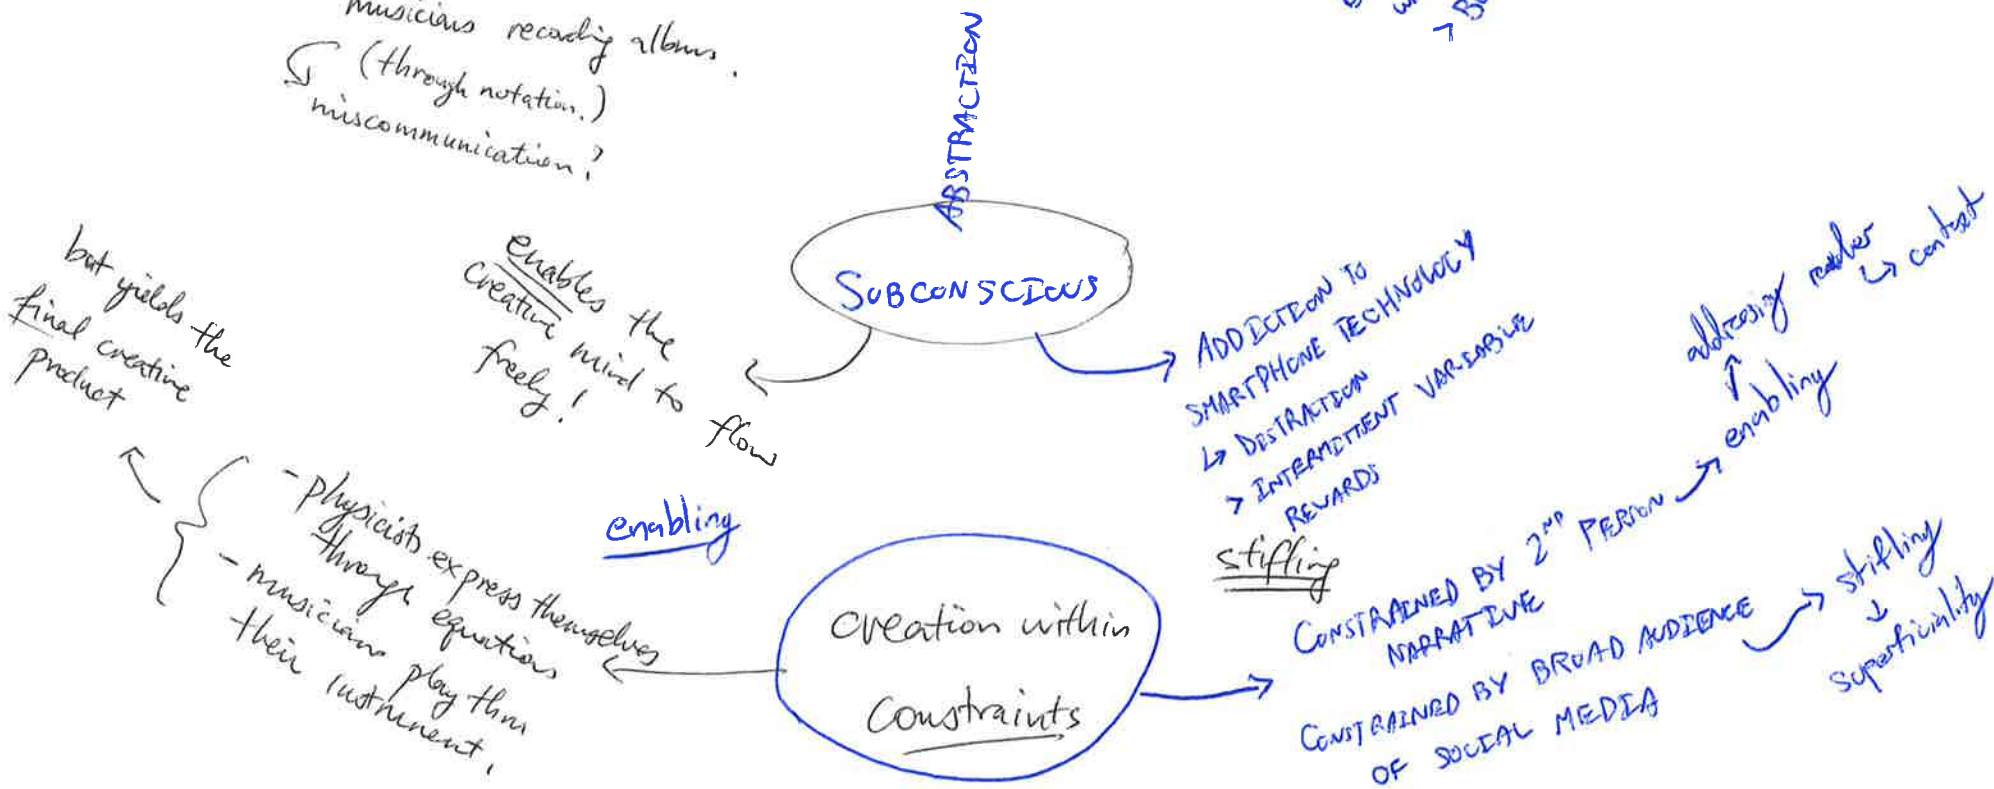 musicians recording albums.
(through notation.)
miscommunication?
ABSTRACTION
> B
SUBCONSCIOUS
enables the
creative mind to flow
freely!
but yields the
final creative
product
ADDICTION TO
SMARTPHONE TECHNOLOGY
↳ DISTRACTION
> INTERMITTENT VARIABLE
REWARDS
addressing reader
↳ context
enabling
enabling
stifling
- physicists express themselves
through equations
- musicians play thru
their instrument.
creation within
constraints
CONSTRAINED BY 2ND PERSON
NARRATIVE
CONSTRAINED BY BROAD AUDIENCE
OF SOCIAL MEDIA
stifling
↓
superficiality